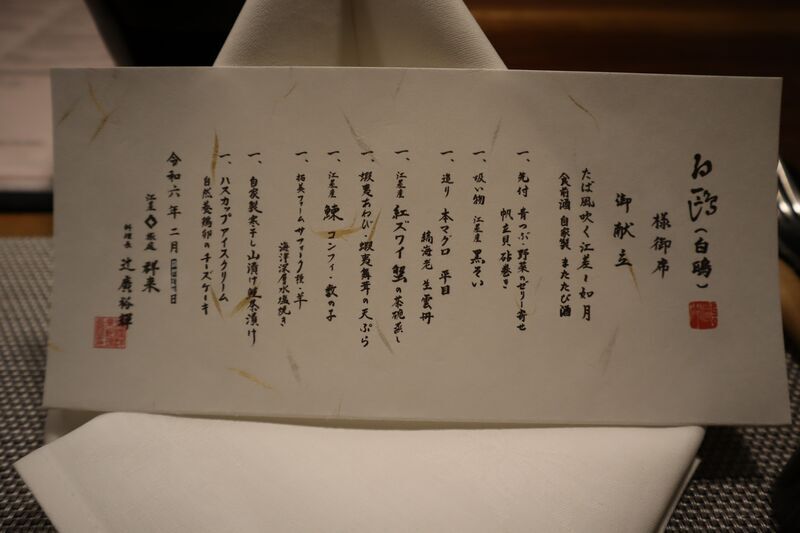 白鴎（白鴎）
様御席
御献立
たば風吹く江差・如月
食前酒 自家製 またたび酒
一、先付 青つぶ・野菜のゼリー寄せ
帆立貝、砧巻き
一、吸い物 江差産 黒そい
一、造り 本マグロ 平目
縞海老 生雲丹
一、江差産 紅ズワイ蟹の茶碗蒸し
一、蝦夷あわび・蝦夷舞茸の天ぷら
一、江差産 鰊 コンフィ・数の子
一、拓美ファーム サフォーク種・羊
海洋深層水塩焼き
一、自家製 寒干し山漬け鮭茶漬け
一、ハスカップアイスクリーム
自然養鶏卵のチーズケーキ
令和六年 二月
江差 旅庭 群来
料理長 辻廣裕輝